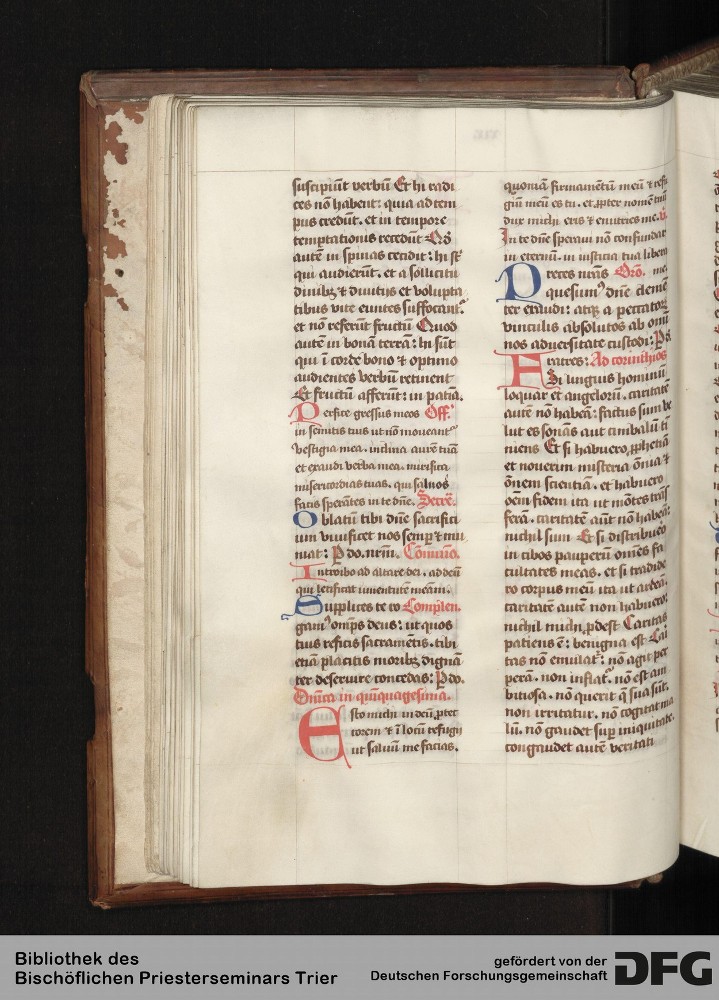 suscipiūt verbū Et hi radi
ces nō habent: quia ad tem
pus credūt. et in tempore
temptationis recedūt Qđ
autē in spinas cecidit: hi st̄
qui audierūt. et a sollicitu
dinibꝫ ⁊ divitijs et volupta
tibus vite euntes suffocant̄.
et nō referūt fructū Quod
autē in bonā terrā: hi sūt
qui ī corde bono ⁊ optimo
audientes verbū retinent
Et fructū afferūt: in patīa.
Perfice gressus meos Off̄.
in semitis tuis ut nō moveant̄
vestigia mea. inclina aurē tuā
et exaudi verba mea. mirifica
misericordias tuas. qui salvos
facis sperātes in te dn̄e. Secrē.
Oblatū tibi dn̄e sacrifici
um vivificet nos semꝑ ⁊ mu
niat: P do. nrm̄. Cōmunio.
Introibo ad altare dei. ad deū
qui letificat iuventutē meām.
Supplices te ro Complen.
gam᷒ om̄ps deus: ut quos
tuis reficis sacramētis. tibi
etiā placitis moribꝫ dignā
ter deservire concedas: P do.
Dn̄ica in quīquagesima.
Esto michi in deū ꝓtec
torem ⁊ ī locū refugij
ut salvū me facias.
quoniā firmamētū meū ⁊ refu
giū meū es tu. et ꝓpter nomē tuū
dux michi eris ⁊ enutries me. v̄.
In te dn̄e speravi nō confundar
in eternū. in iusticia tua libera
Preces nr̄as Orō. me.
quesum᷒ dn̄e clemē
ter exaudi: atqꝫ a peccatoꝝ
vinculis absolutos ab omī
nos adversitate custodi: P d.
Fratres: Ad corinthios
Si linguis hominū
loquar et angelorū. caritatē
autē nō habeā: factus sum ve
lut es sonās aut cimbalū tī
niens Et si habuero ꝓphetiā
et noverim misteria ōnia ⁊
ōnem scientiā. et habuero
oēm fidem ita ut mōtes trās
ferā. caritatē aūt nō habeā:
nichil sum Et si distribuero
in cibos pauperū omēs fa
cultates meas. et si tradide
ro corpus meū ita ut ardeā:
caritatē autē non habuero:
nichil michi ꝓdest Caritas
patiens ē: benigna est Cari
tas nō emulat̄: nō agit per
perā. non inflat̄. nō est am
bitiosa. nō querit q̄ sua sūt.
non irritatur. nō cogitat ma
lū. nō gaudet suꝑ iniquitate.
congaudet autē veritati
Bibliothek des
Bischöflichen Priesterseminars Trier
gefördert von der
Deutschen Forschungsgemeinschaft
DFG